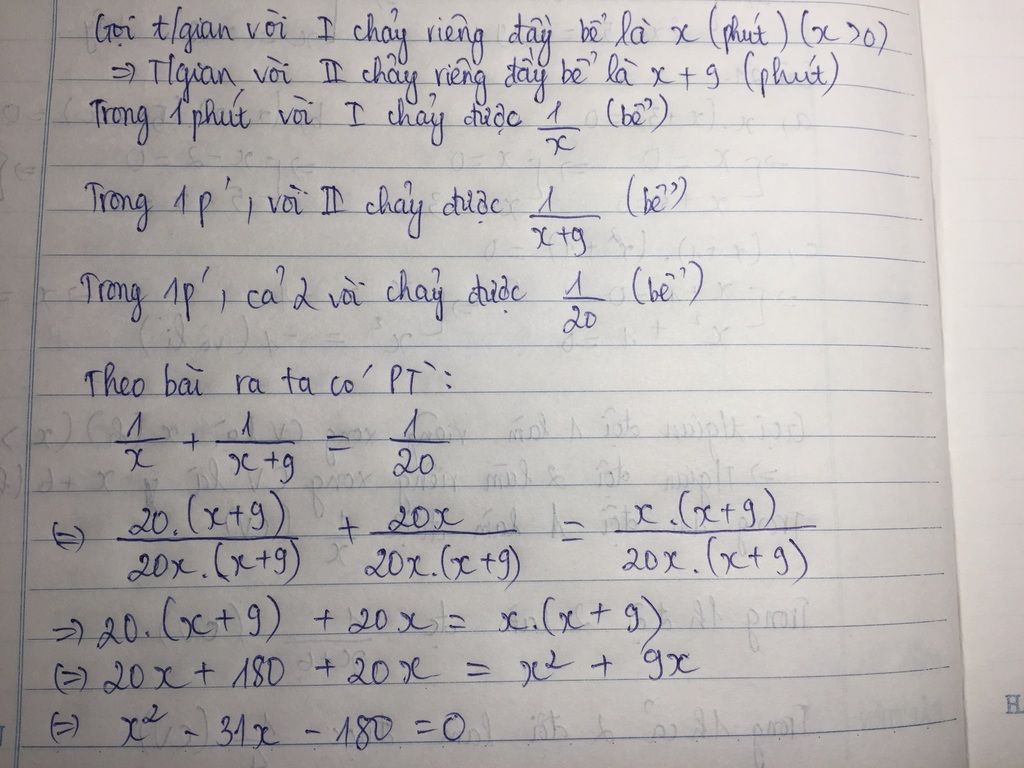 Gọi t/gian vòi I chảy riêng đầy bể là x (phút) (x >0)
=> T/gian vòi II chảy riêng đầy bể là x + 9 (phút)
Trong 1 phút vòi I chảy được 1/x (bể)
Trong 1p', vòi II chảy được 1/(x+9) (bể)
Trong 1p', cả 2 vòi chảy được 1/20 (bể)
Theo bài ra ta có PT:
1/x + 1/(x+9) = 1/20
(=) 20.(x+9)/20x.(x+9) + 20x/20x.(x+9) = x.(x+9)/20x.(x+9)
=> 20.(x+9) + 20x = x.(x+9)
(=) 20x + 180 + 20x = x² + 9x
(=) x² - 31x - 180 = 0